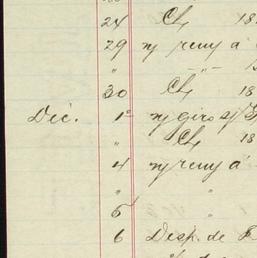 24 Ch/ 18
29 n/ remy a
" "
30 Ch/ 18
Dic. 1º n/ giro s/
" Ch/ 18
4 n/ remy a
" "
5
6 Desp. de